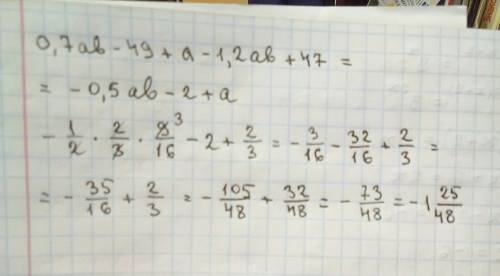 0,7ab - 49 + a - 1,2ab + 47 =
= - 0,5ab - 2 + a
- 1/2 · 2/3 · 9³/16 - 2 + 2/3 = - 3/16 - 32/16 + 2/3 =
= - 35/16 + 2/3 = - 105/48 + 32/48 = - 73/48 = -1 25/48